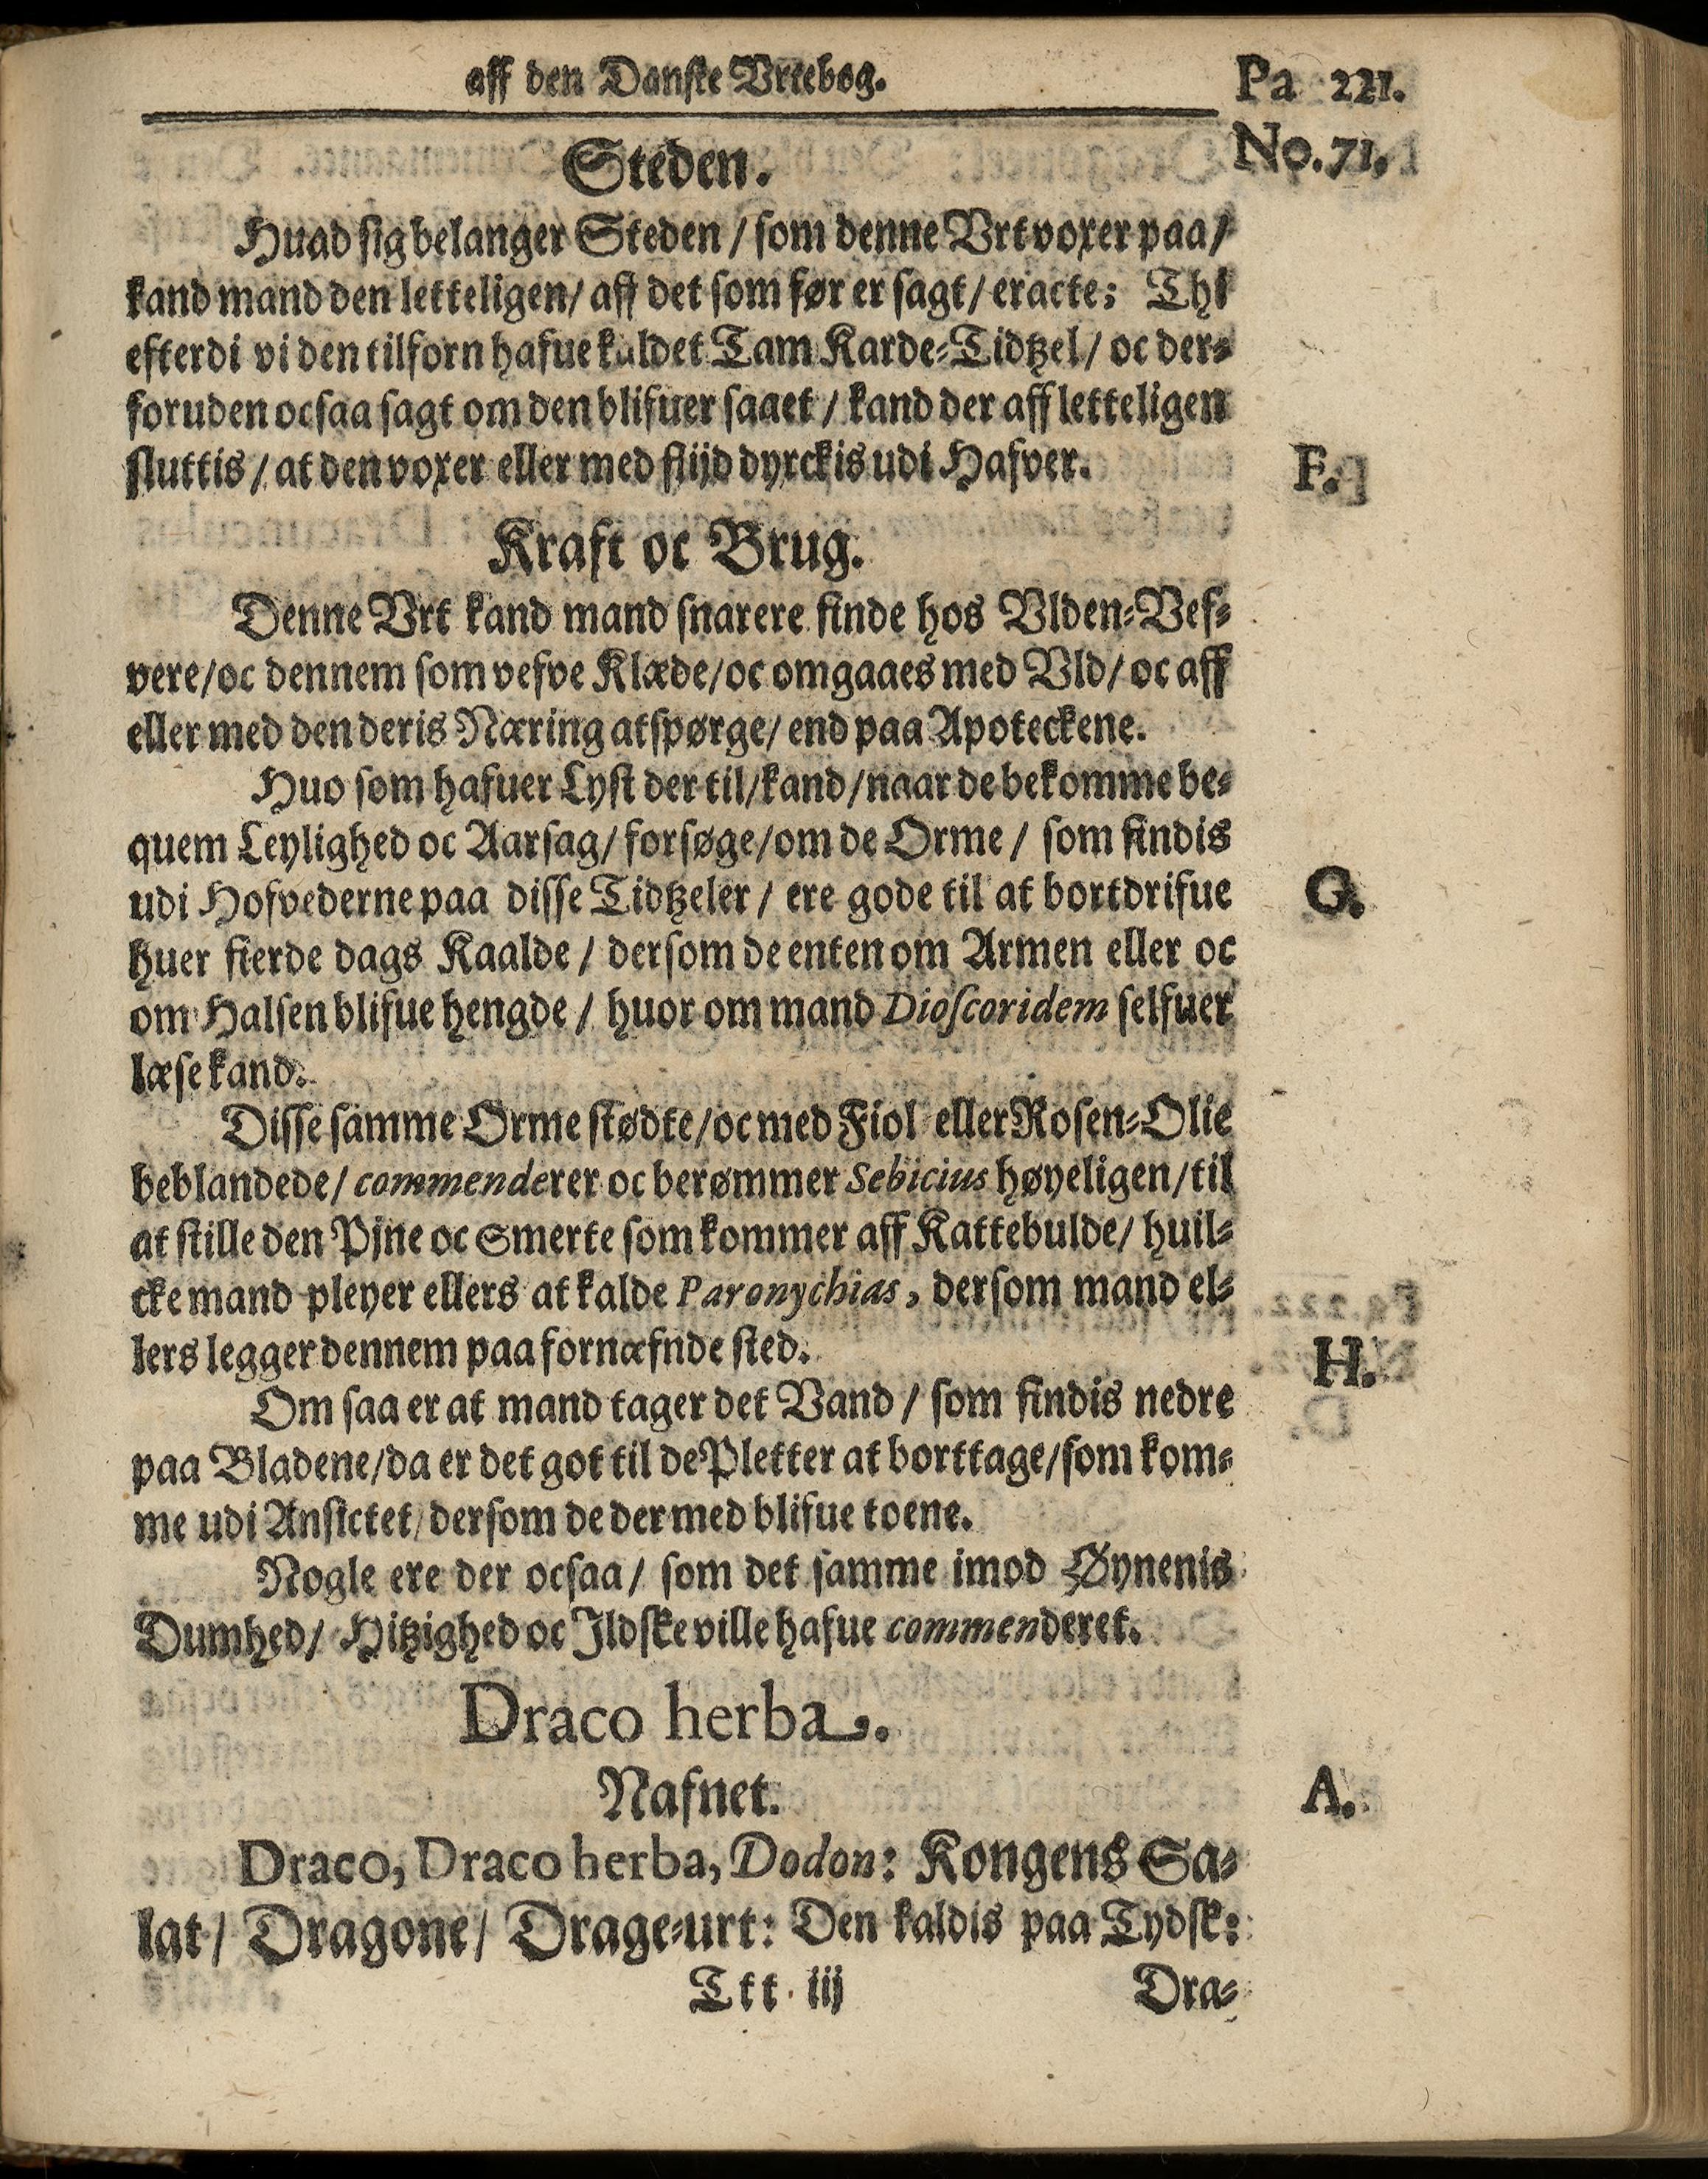 aff den Danske Vrtebog.
Pa 221.
No. 71.
Steden.
Huad sig belanger Steden / som denne Vrt voxer paa /
kand mand den letteligen / aff det som før er sagt / eracte: Thi
efterdi vi den tilforn hafue kaldet Tam Karde-Tidtzel / oc der-
foruden ocsaa sagt om den blifuer saaet / kand der aff letteligen
sluttis / at den voxer eller med flijd dyrckis udi Hafver.
F.
Kraft oc Brug.
Denne Vrt kand mand snarere finde hos Vlden-Vef-
vere / oc dennem som vefve Klæde / oc omgaaes med Vld / oc aff
eller med den deris Næring at spørge / end paa Apoteckene.
Huo som hafuer Lyst der til / kand / naar de bekomme be-
quem Leylighed oc Aarsag / forsøge / om de Orme / som findis
udi Hofvederne paa disse Tidtzeler / ere gode til at bortdrifue
G.
huer fierde dags Kaalde / dersom de enten om Armen eller oc
om Halsen blifue hengde / huor om mand Dioscoridem selfuer
læse kand.
Disse samme Orme stødte / oc med Fiol eller Rosen-Olie
beblandede / commenderer oc berømmer Sebicius høyeligen / til
at stille den Pjne oc Smerte som kommer aff Kattebulde / huil-
cke mand pleyer ellers at kalde Paronychias, dersom mand el-
lers legger dennem paa fornæfnde sted.
H.
Om saa er at mand tager det Vand / som findis nedre
paa Bladene / da er det got til de Pletter at borttage / som kom-
me udi Ansictet / dersom de der med blifue toene.
Nogle ere der ocsaa / som det samme imod Øynenis
Dumhed / Hitzighed oc Ildske ville hafue commenderet.
Draco herba.
Nafnet.
A.
Draco, Draco herba, Dodon: Kongens Sa-
lat / Dragone / Drage-urt: Den kaldis paa Tydsk:
Ttt iij
Dra-